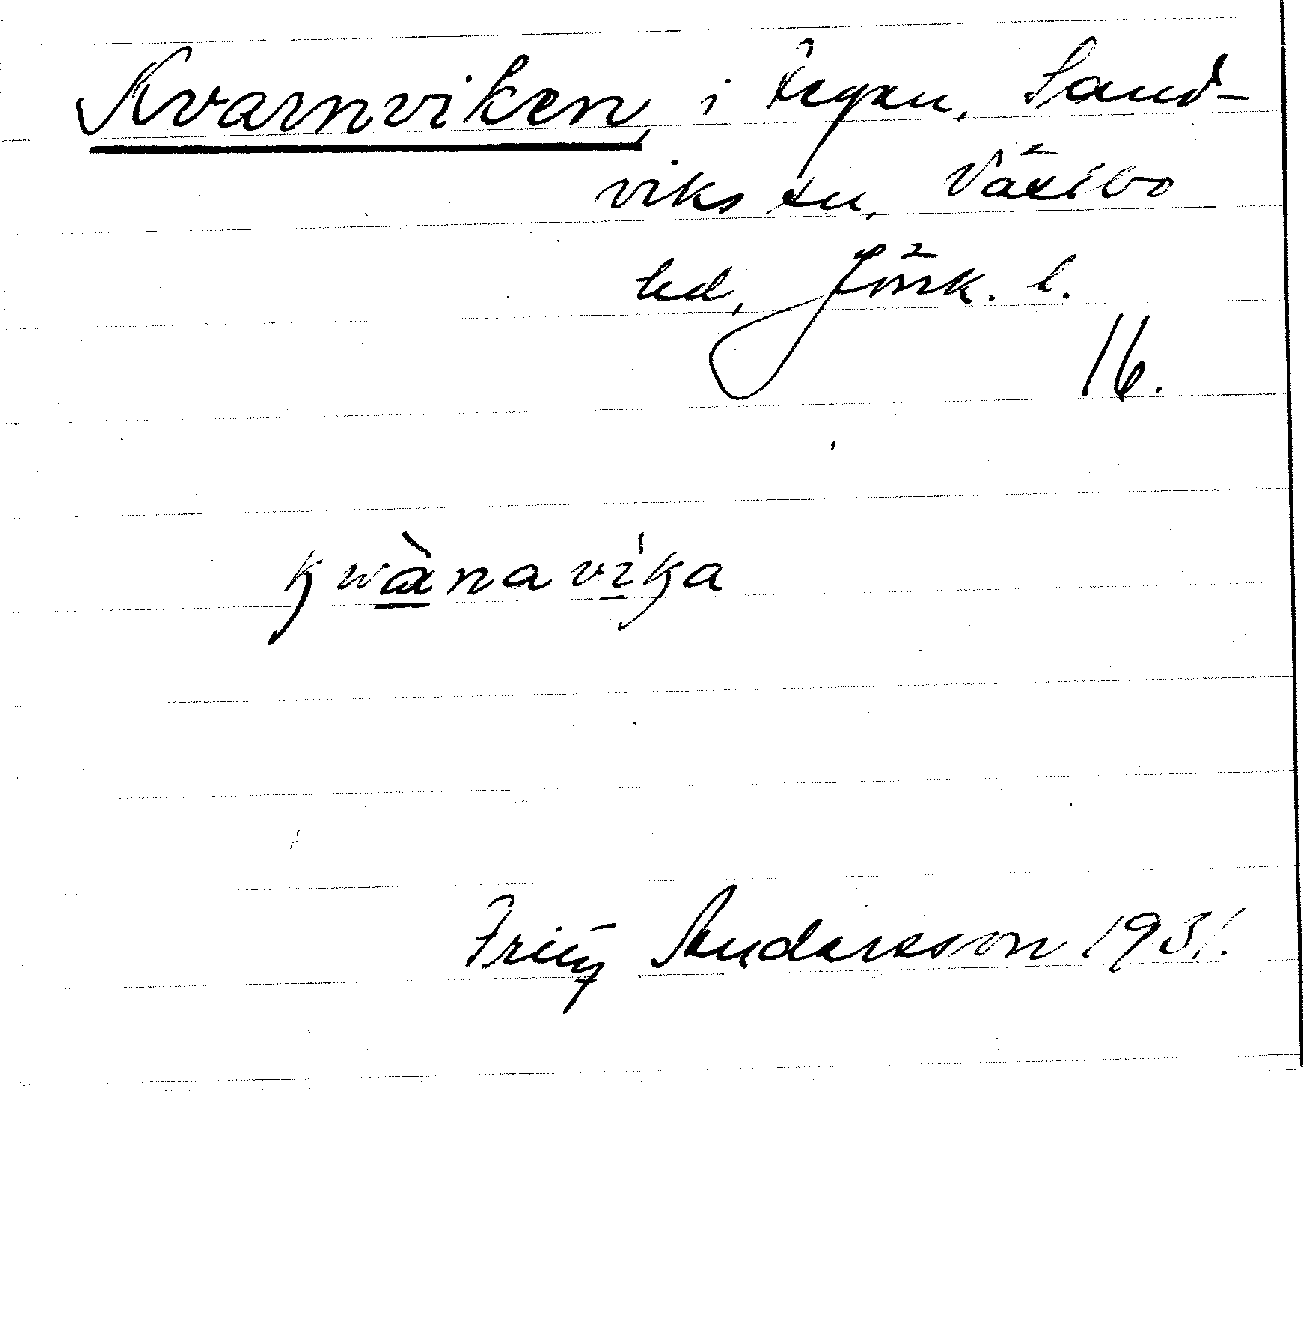 Kvarnviken, i Fegen, Sand-
viks sn, Västbo
hd, Jönk. l.
16.
kwànavíka
Fritz Andersson 1931.